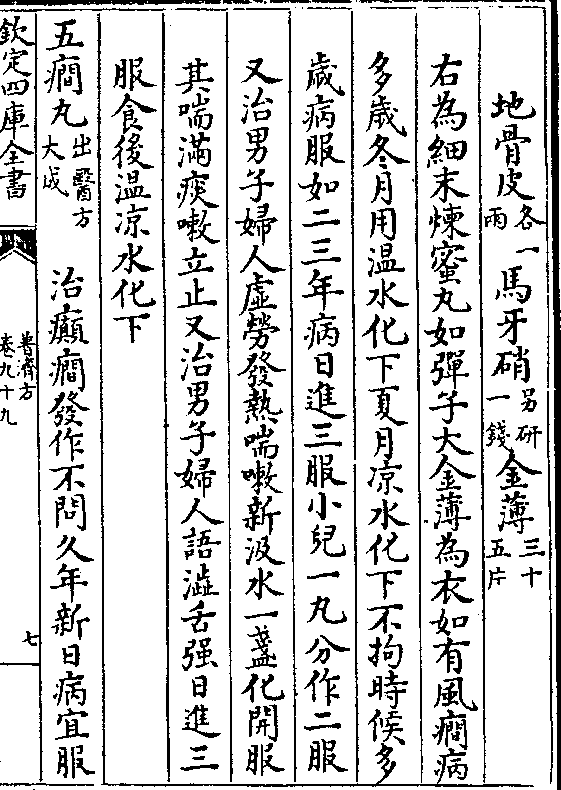 地骨皮各一兩馬牙硝另研一錢金薄三十五片
右為細末煉蜜丸如彈子大金薄為衣如有風癎病
多歲冬月用温水化下夏月凉水化下不拘時候多
歲病服如二三年病日進三服小兒一丸分作二服
又治男子婦人虛勞發熱喘嗽新汲水一盞化開服
其喘滿痰嗽立止又治男子婦人語澁舌强日進三
服食後温凉水化下
五癎丸出醫方大成 治癲癎發作不問久年新日病宜服
欽定四庫全書
普濟方
卷九十九
七